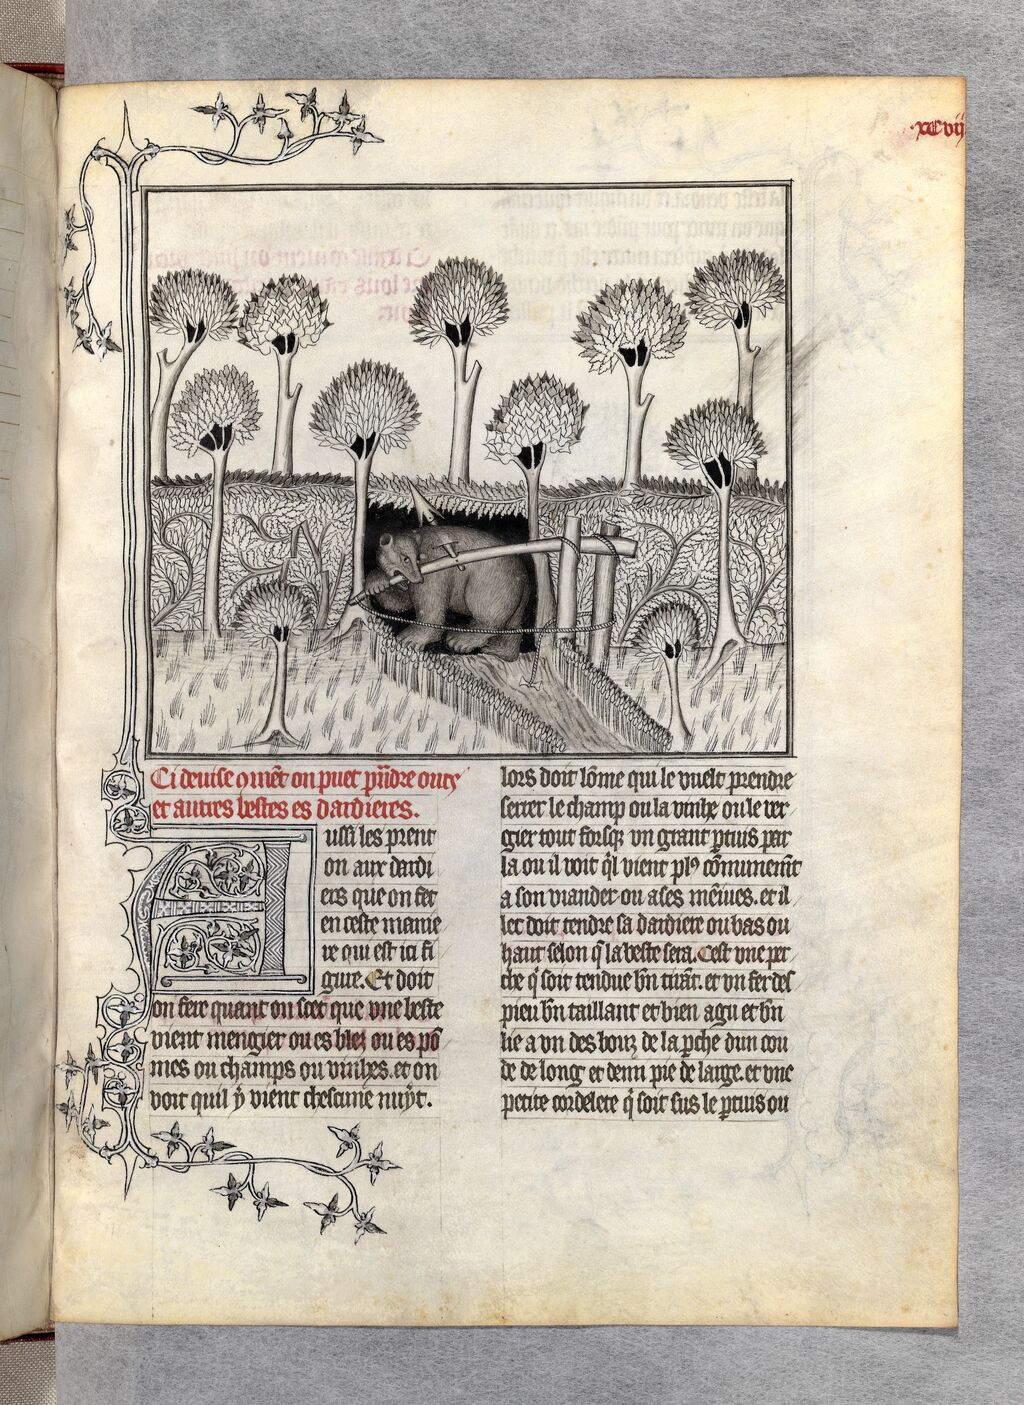 ·xcvij
Ci deuise o mēt on puet p̄ndre ours
et autres bestes es dardieres.
Aussi les prent
on aux dardi
ers que on fet
en ceste manie
re qui est ici fi
gure. Et doit
on fere quant on scet que vne beste
vient mengier ou es blez ou es pō
mes ou champs ou vinhes. et on
voit quil ẏ vient chescune nuẏt.
lors doit lōme qui le vuelt prendre
serrer le champ ou la vinhe ou le ver
gier tout forsq̄ vn grant ꝑtuis par
la ou il voit q̄l vient plꝰ cōmunemēt
a son viander ou a ses mēiues. et il
lec doit tendre sa dardiere ou bas ou
haut selon q̄ la beste sera. Cest vne per
che q̄ soit tendue bn̄ tirāt. et vn fer des
pieu bn̄ taillant et bien agu et bn̄
lie a vn des bouz de la ꝑche dun cou
de de long et demi pie de large. et vne
petite cordelete q̄ soit sus le ꝑtuis ou